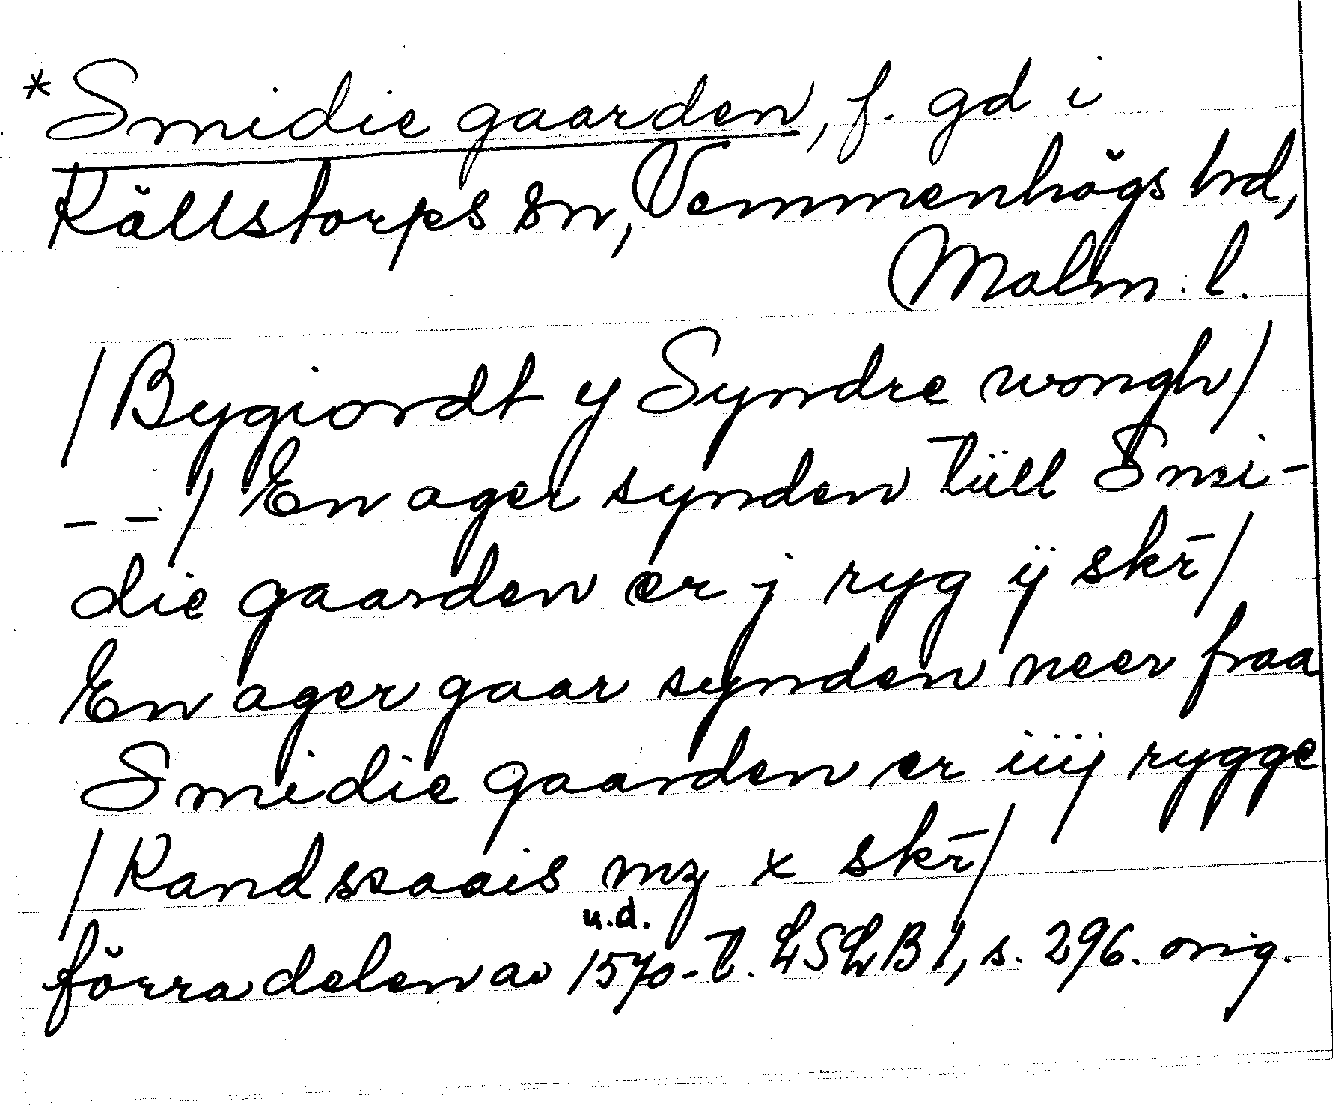 *Smidie gaarden, f. gd i
Källstorps sn, Vemmenhögs hd,
Malm. l.
/Bygiordt y Syndre wongh/
_ _/ En ager synden tüll Smi-
die gaarden er j ryg ÿ skr̄/
En ager gaar synden neer fraa
Smidie gaarden er iiij rygge
/Rand szaais mz x skr̄/
u.d.
förra delen av 1570-t. LSLB 1, s. 296. orig.